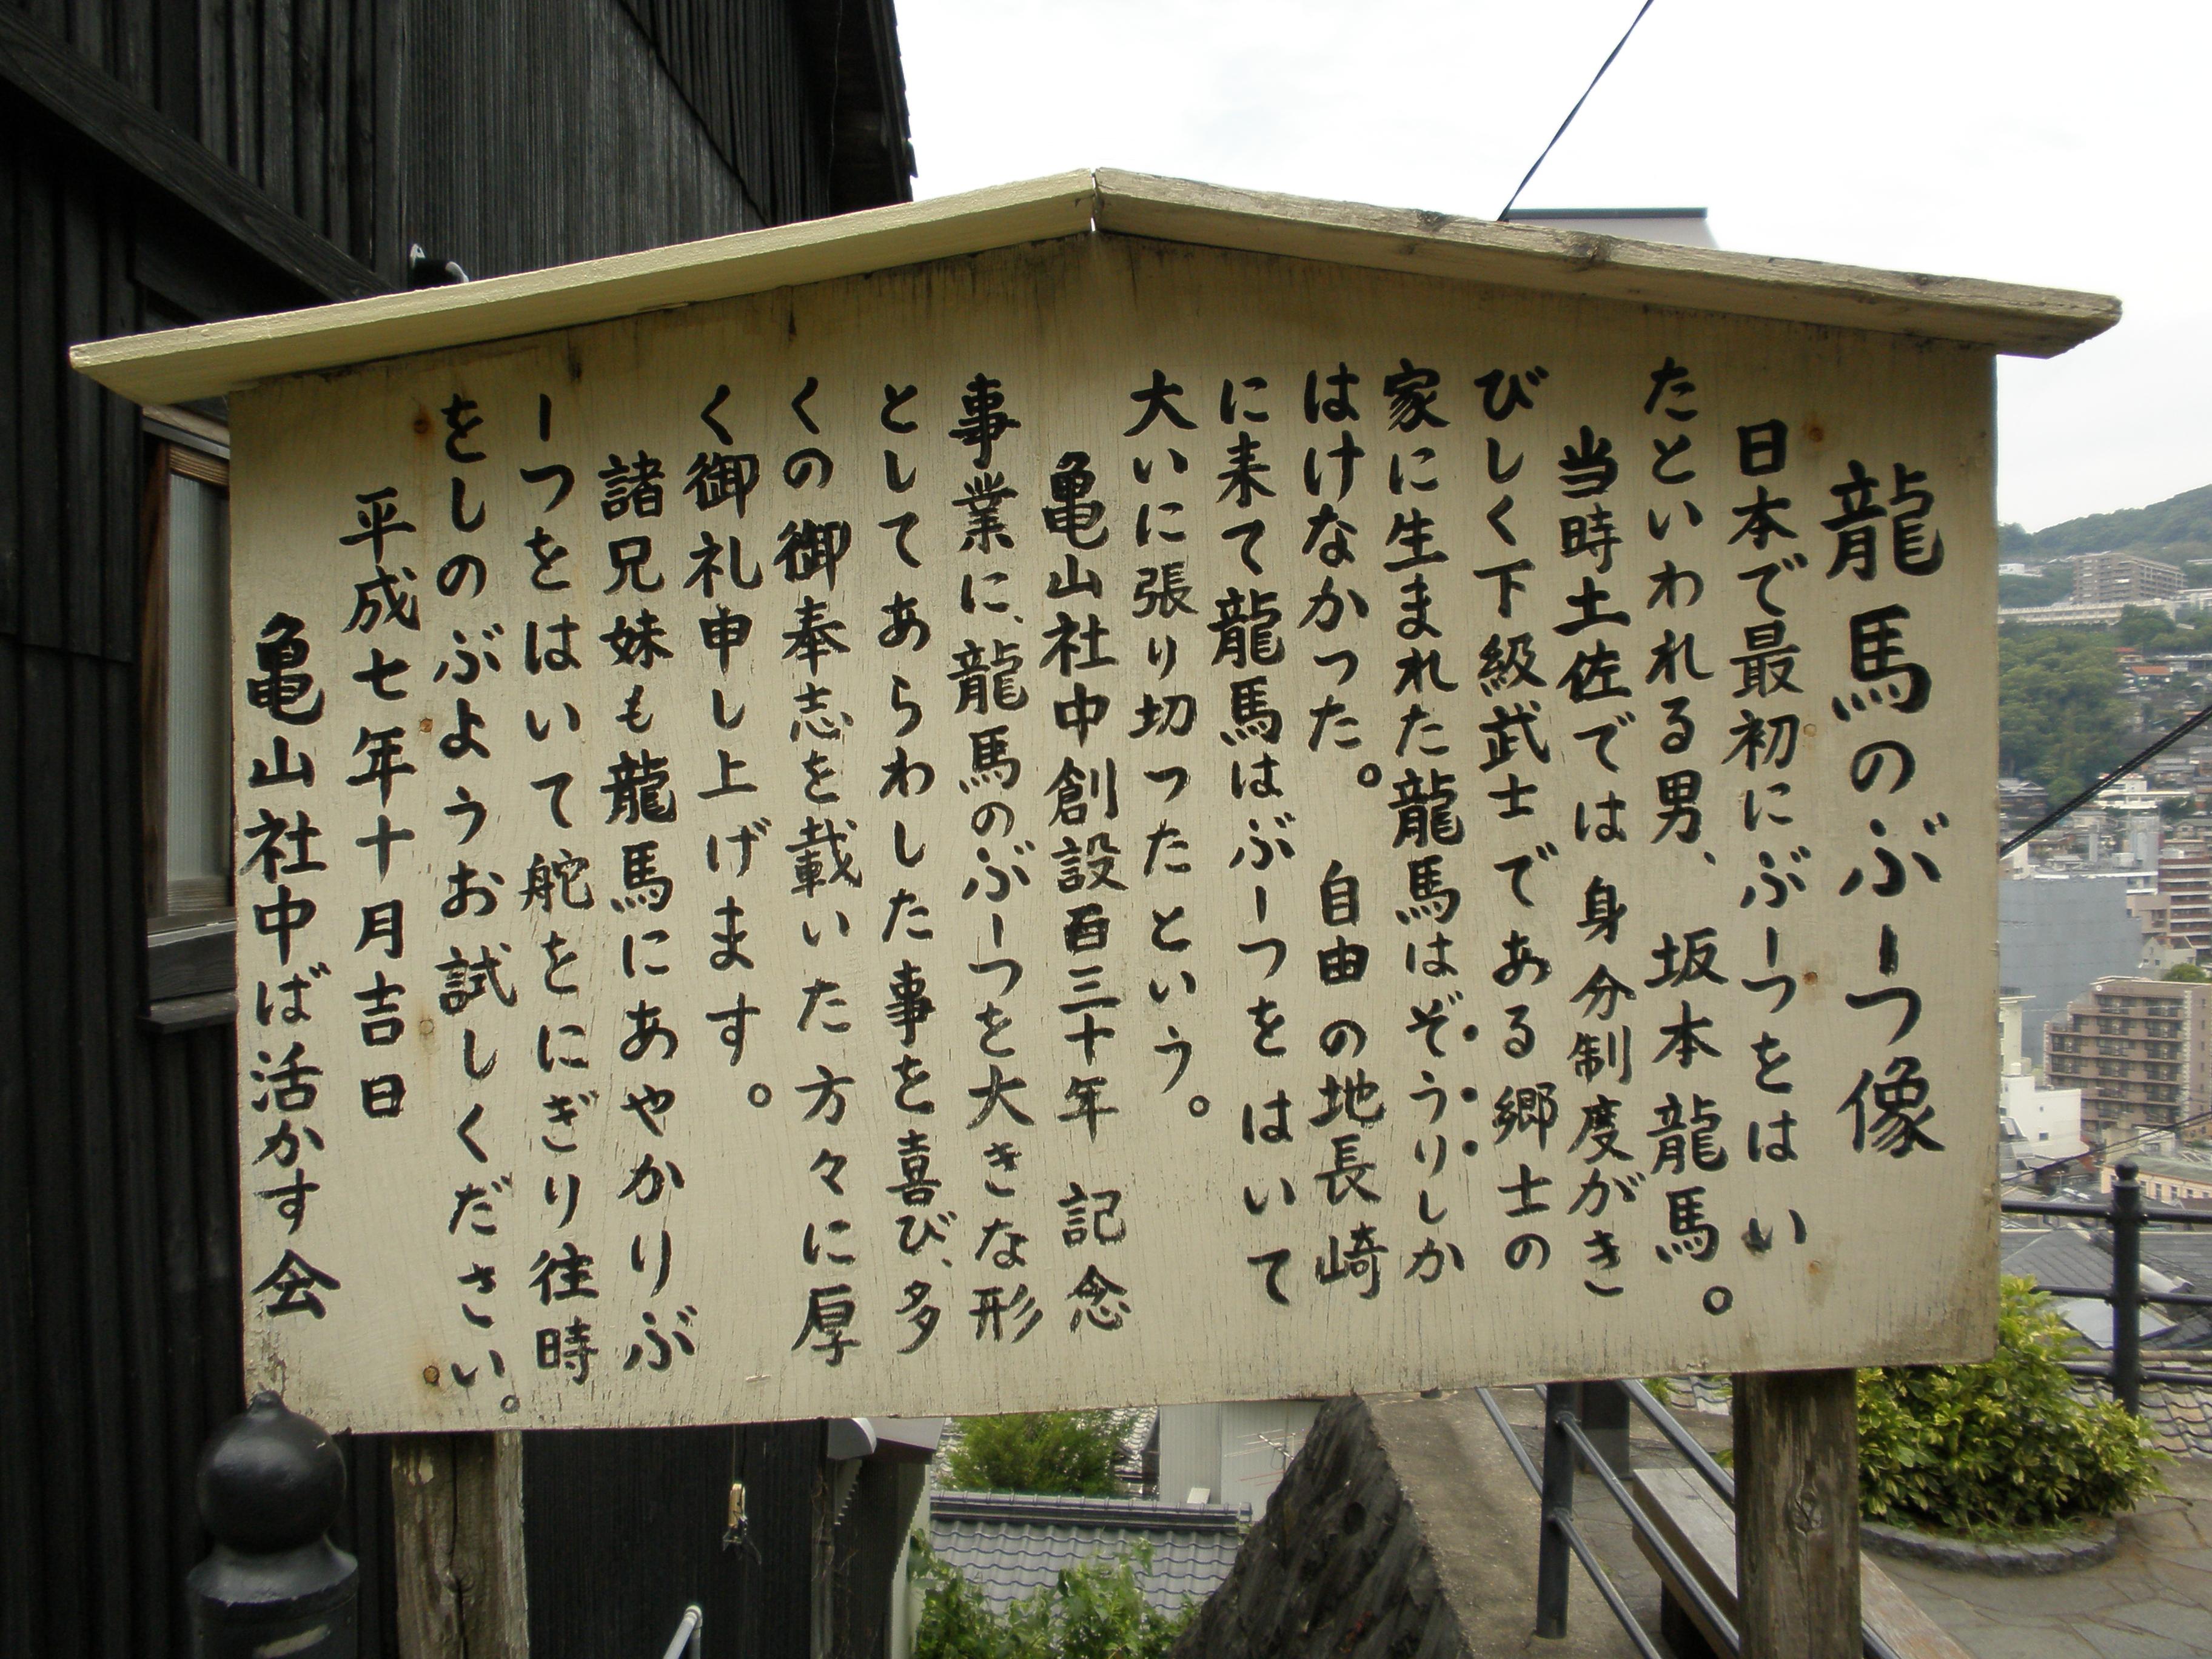 龍馬のぶーつ像
日本で最初にぶーつをはい
たといわれる男、坂本龍馬。
当時土佐では身分制度がき
びしく下級武士である郷士の
家に生まれた龍馬はぞうりしか
はけなかった。自由の地長崎
に来て龍馬はぶーつをはいて
大いに張り切ったという。
亀山社中創設百三十年記念
事業に、龍馬のぶーつを大きな形
としてあらわした事を喜び、多
くの御奉志を載いた方々に厚
く御礼申し上げます。
諸兄妹も龍馬にあやかりぶ
ーつをはいて舵をにぎり往時
をしのぶようお試しください。
平成七年十月吉日
亀山社中ば活かす会